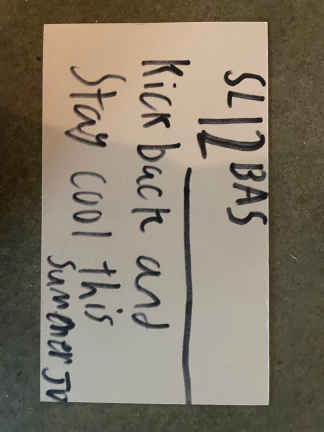 SL12 BAS
Kick back and
Stay cool this
summer JV